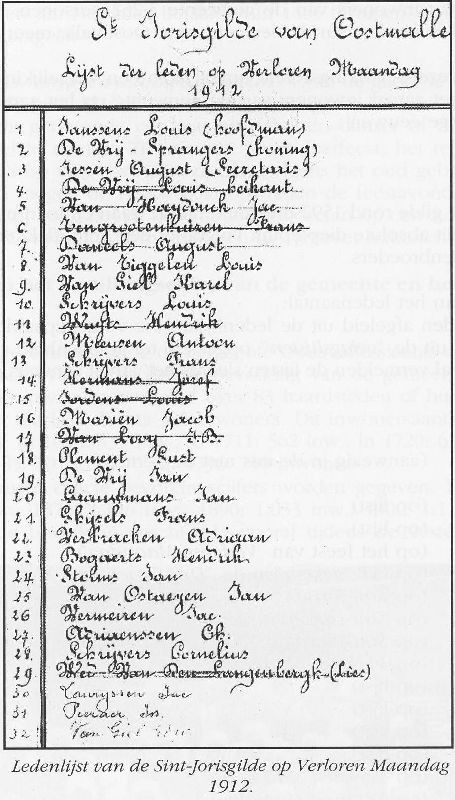 St Jorisgilde van Oostmalle
Lijst der leden op Verloren Maandag
1912
1 Janssens Louis (hoofdman)
2 De Vrij - Sprangers (koning)
3 Jessen August (Secretaris)
4 De Vrij Louis
5 Van Hoeydonck Jac
6 Frans
7 Daneels August
8 Van Tiggelen Louis
9 Van Giel Karel
10 Schrijvers Louis
11 Wuyts Hendrik
12 Meeusen Antoon
13 Schrijvers Frans
14 Hermans Josef
15 Jordens Louis
16 Mariën Jacob
17 Van Looy J.B.
18 Clement Gust
19 De Vrij Jan
20 Jan
21 Frans
22 Verbracken Adriaan
23 Bogaerts Hendrik
24 Stoms Jan
25 Van Ostaeyen Jan
26 Vermeiren Jac.
27 Adriaenssen Ch.
28 Schrijvers Cornelius
29 Wed Van Den Langenbergh (Lies)
30 Lauryssen Jac
31
32 Van Giel
Ledenlijst van de Sint-Jorisgilde op Verloren Maandag
1912.